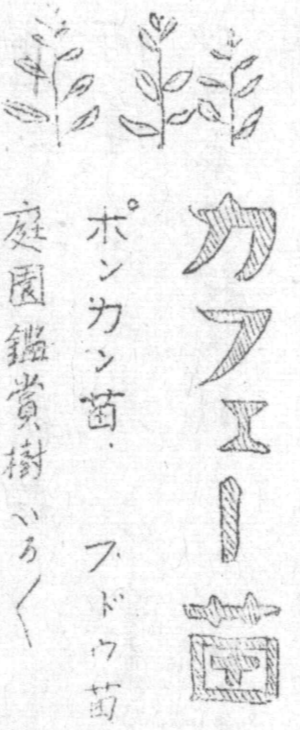 カフェー苗
ポンカン苗． ブドウ苗
庭園鑑賞樹いろ〱